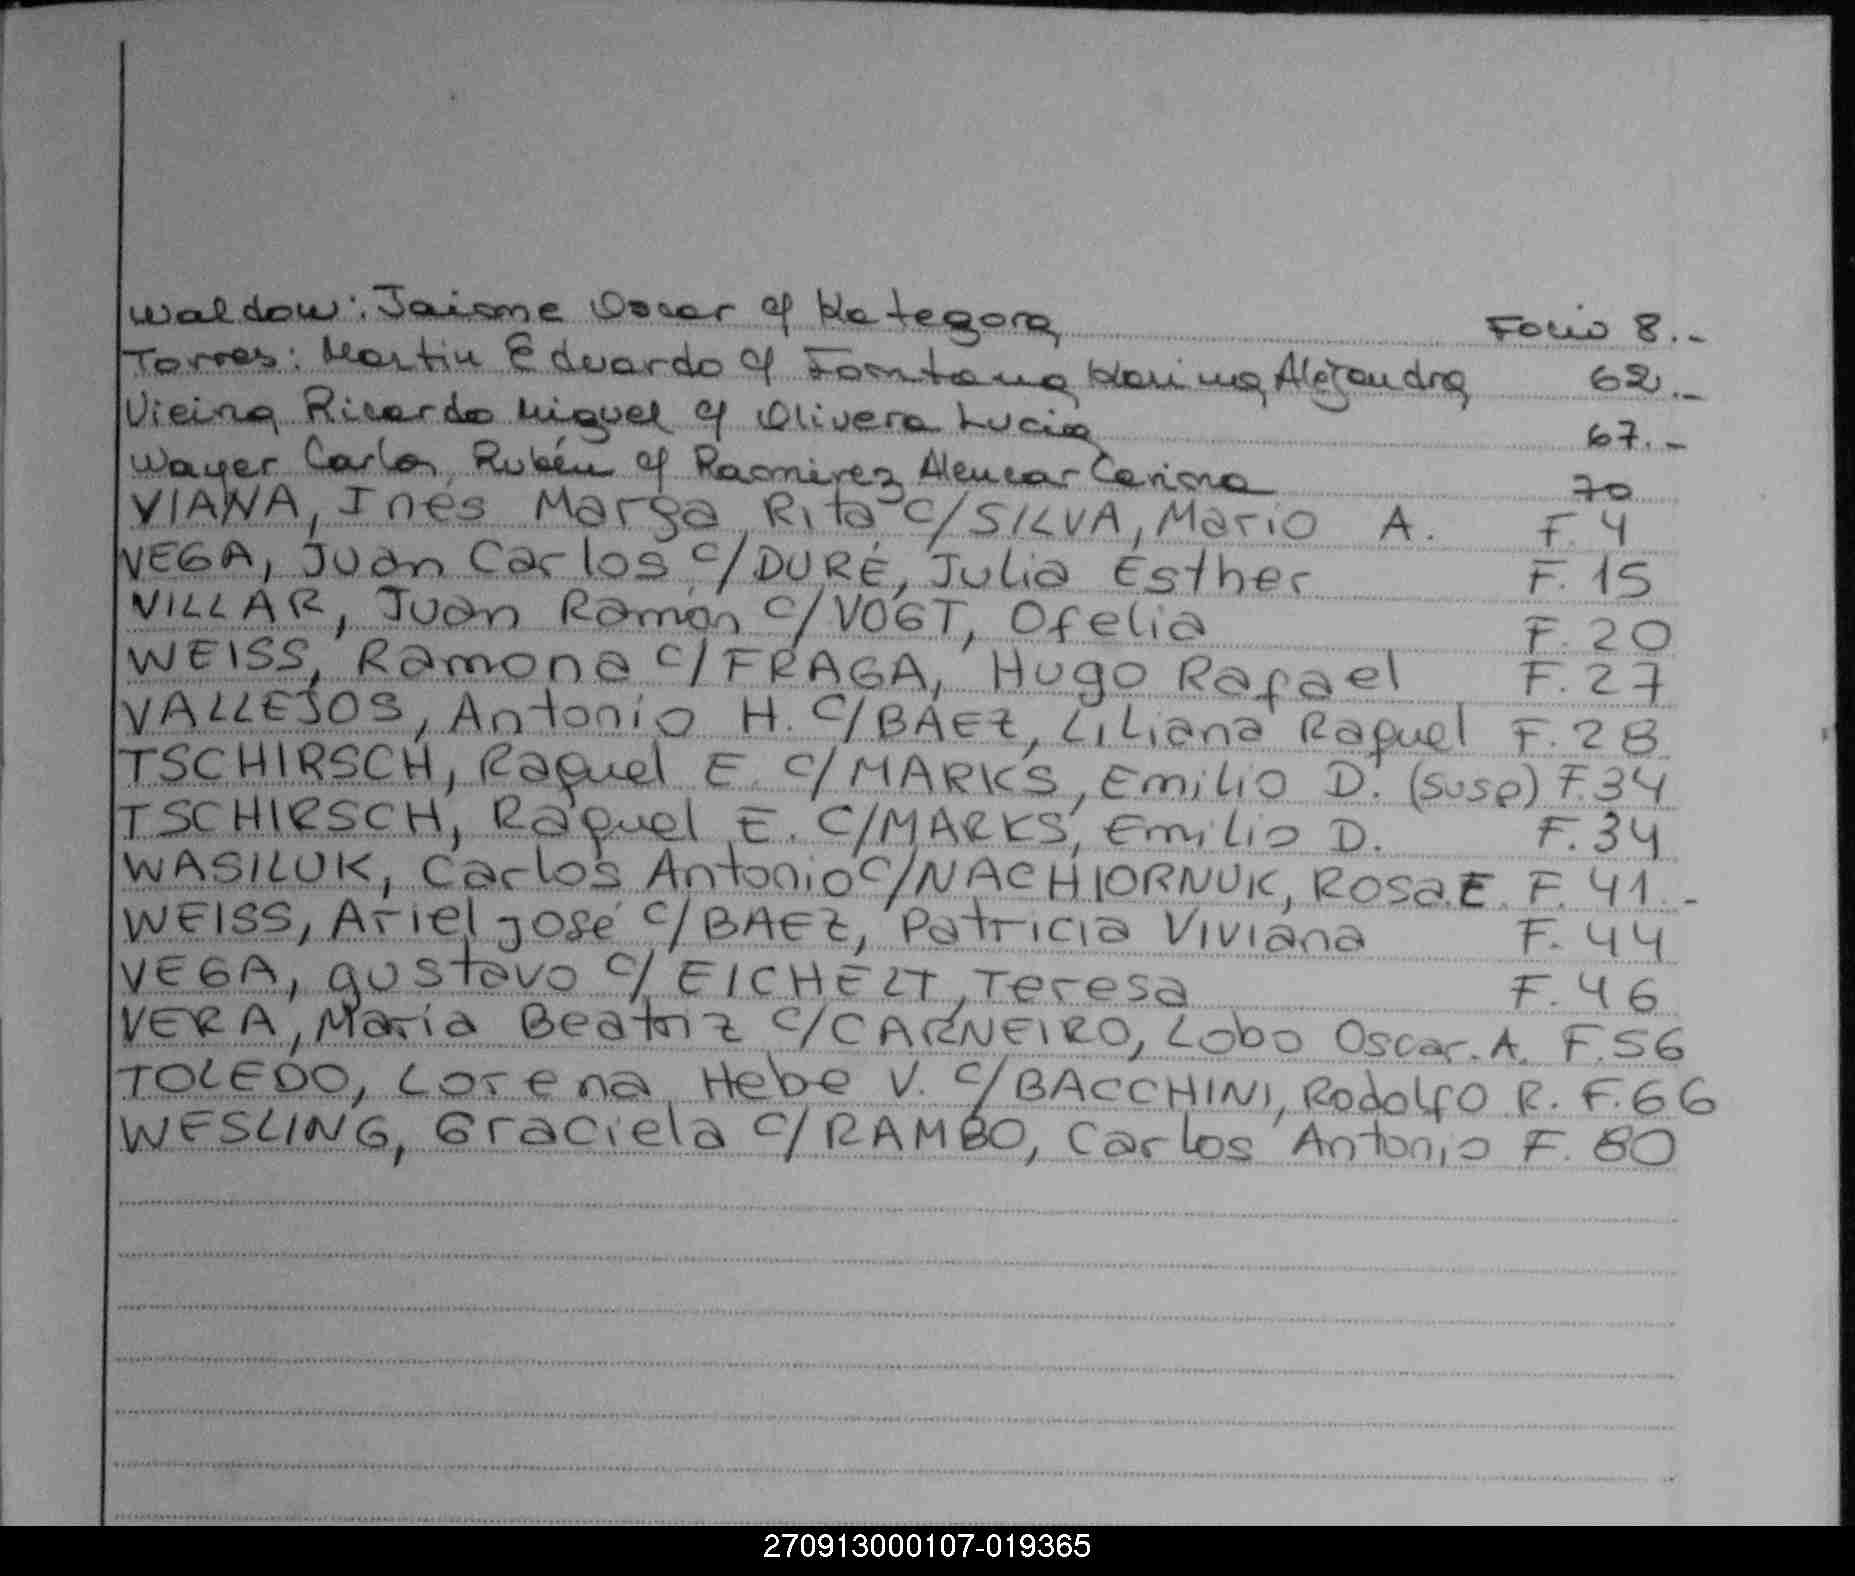 Waldow: Jaime Oscar c/ Kategora Folio 8.-
Torres: Martin Eduardo c/ Fontana Karina Alejandra 62.-
Vieira Ricardo Miguel c/ Olivera Lucia 67.-
Wayer Carlos Rubén c/ Ramirez Alencar Carina 70
VIANA, Inés Marga Rita c/SILVA, Mario A. F. 4
VEGA, Juan Carlos c/DURÉ, Julia Esther F. 15
VILLAR, Juan Ramón c/VOGT, Ofelia F. 20
WEISS, Ramona c/FRAGA, Hugo Rafael F. 27
VALLEJOS, Antonio H. c/BAEZ, Liliana Raquel F. 28
TSCHIRSCH, Raquel E. c/MARKS, Emilio D. (susp) F.34
TSCHIRSCH, Raquel E. c/MARKS, Emilio D. F.34
WASILUK, Carlos Antonio c/NACHIORNUK, Rosa E. F. 41.-
WEISS, Ariel José c/BAEZ, Patricia Viviana F. 44
VEGA, Gustavo c/EICHELT, Teresa F. 46
VERA, María Beatriz c/CARNEIRO, Lobo Oscar. A. F.56
TOLEDO, Lorena Hebe V. c/BACCHINI, Rodolfo R. F.66
WESLING, Graciela c/RAMBO, Carlos Antonio F. 80
270913000107-019365